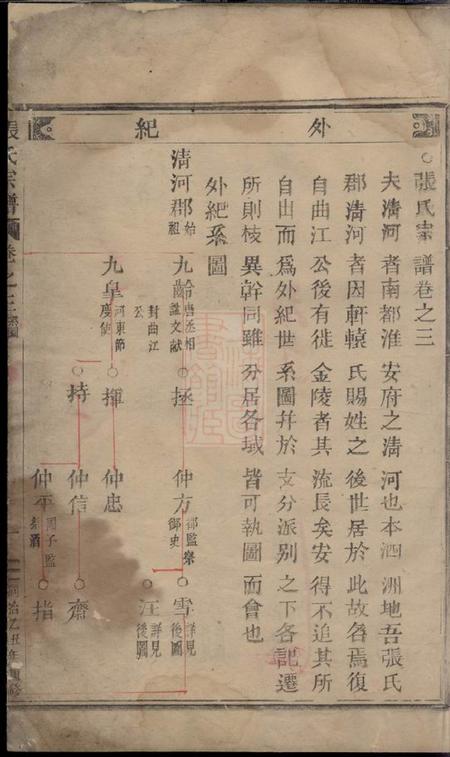 外紀
張氏宗譜卷之三
夫清河者南都淮安府之清河也本泗洲地吾張氏
郡清河者因軒轅氏賜姓之後世居於此故咎焉復
自曲江公後有徙金陵者其流長矣安得不追其所
自出而為外紀世系圖幷於支分派別之下各記遷
所則枝異幹同雖分居各域皆可執圖而會也
外紀系圖
清河郡始祖 九齡唐丞相謚文獻封曲江公 拯 仲方都監察御史 雪詳見後圖
汪詳見後圖
九皇河東節度使 揮 仲忠
持 仲信 齋
仲平國子監祭酒 指
張氏宗譜 卷之三 系圖
同治乙丑年重修